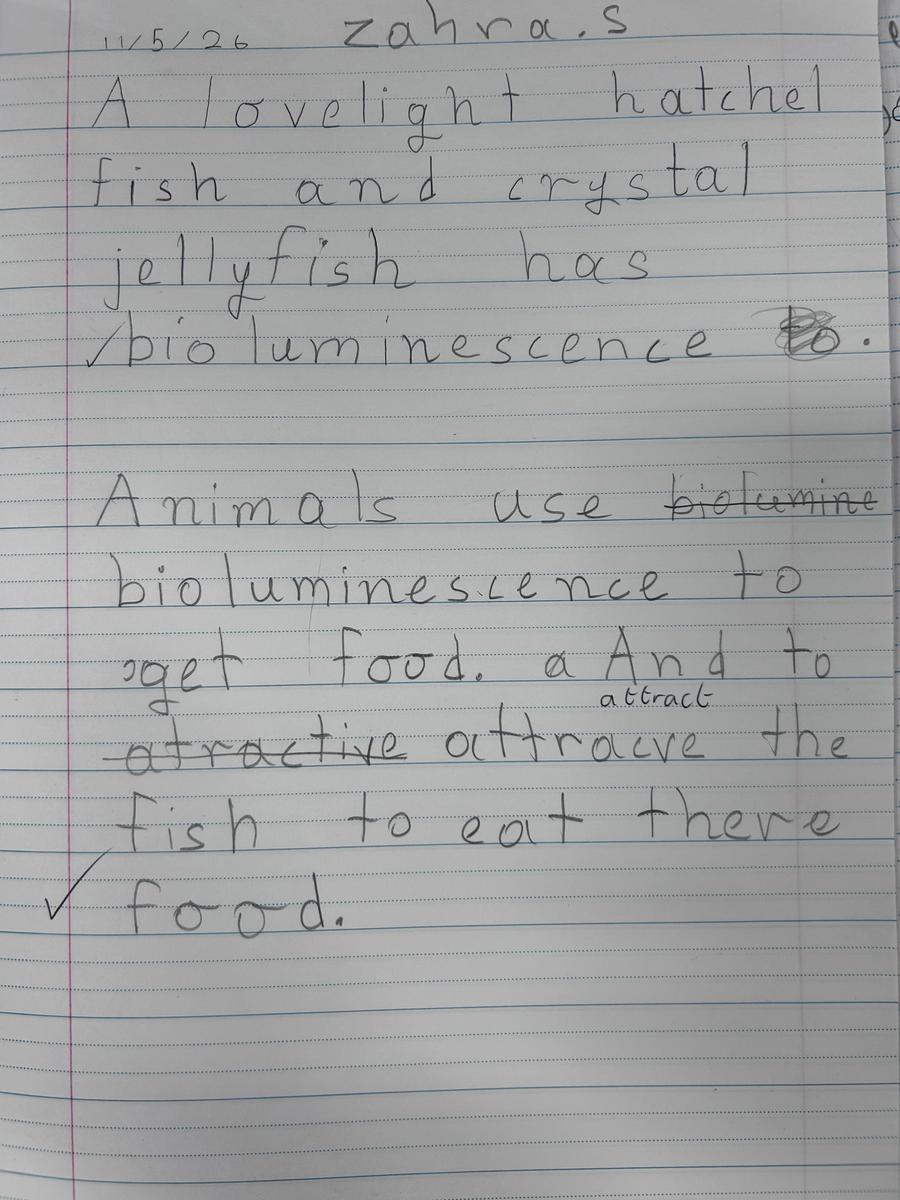 11/5/26 zahra.s
A lovelight hatchel
fish and crystal
jellyfish has
bioluminescence to.
Animals use biolumine
bioluminescence to
get food. a And to
attract
atractive attracve the
fish to eat there
food.